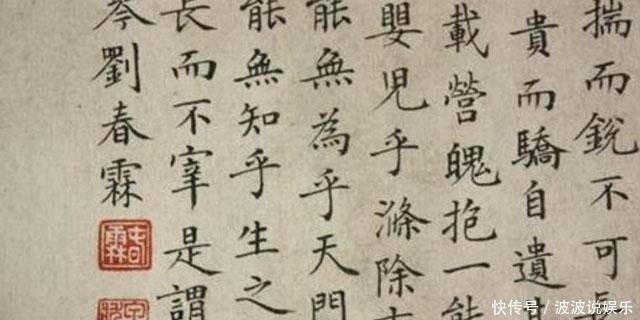 揣而銳不可長
貴而驕自遺
載營魄抱一能
嬰兒乎滌除
能無為乎天門
能無知乎生之
長而不宰是謂
岑劉春霖
春霖
快传号/波波说娱乐